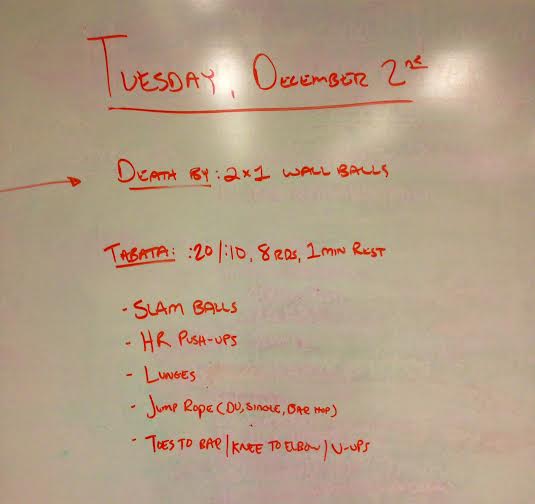 TUESDAY, DECEMBER 2nd
DEATH BY: 2x1 WALL BALLS
TABATA: :20/:10, 8 RDS, 1 MIN REST
- SLAM BALLS
- HR PUSH-UPS
- LUNGES
- JUMP ROPE (DU, SINGLE, BAR HOP)
- TOES TO BAR/KNEE TO ELBOW/V-UPS